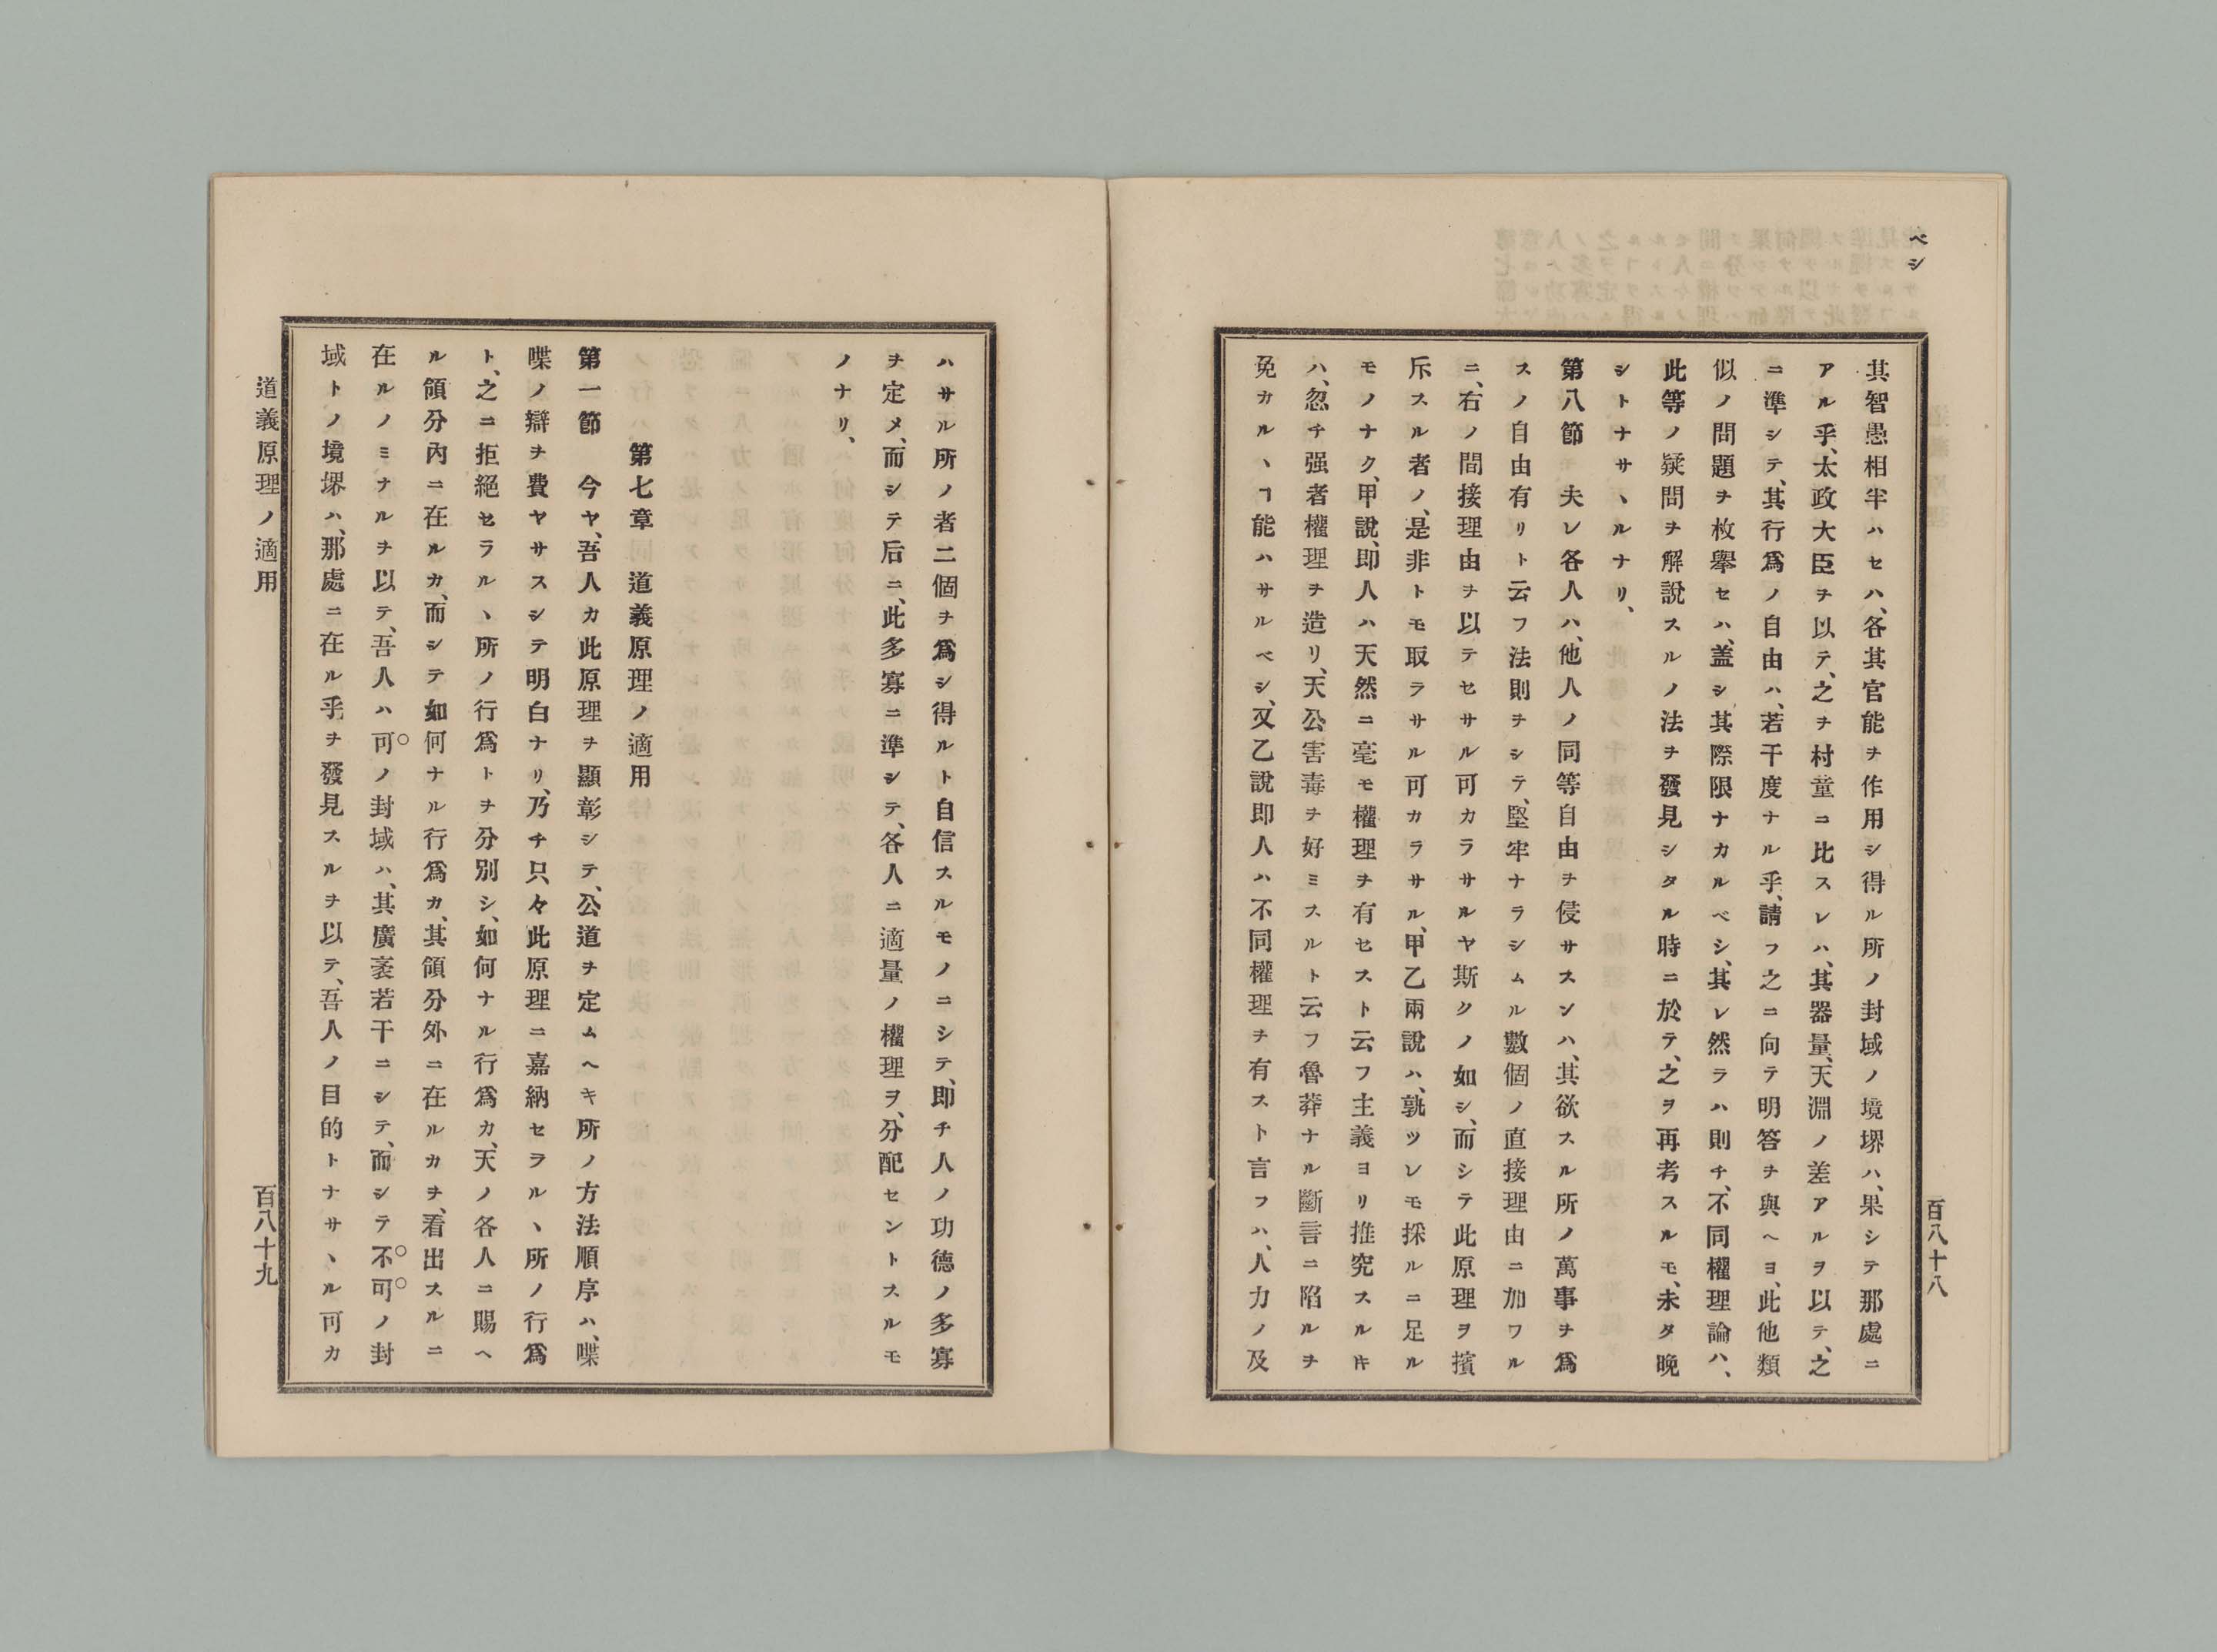 ベシ
其智愚相半ハセハ、各其官能ヲ作用シ得ル所ノ封域ノ境堺ハ、果シテ那處ニ
アル乎、太政大臣ヲ以テ、之ヲ村童ニ比スレハ、其器量、天淵ノ差アルヲ以テ、之
ニ準シテ、其行爲ノ自由ハ、若干度ナル乎、請フ之ニ向テ明答ヲ與ヘヨ、此他類
似ノ問題ヲ枚擧セハ、盖シ其際限ナカルベシ、其レ然ラハ則チ、不同權理論ハ、
此等ノ疑問ヲ解說スルノ法ヲ發見シタル時ニ於テ、之ヲ再考スルモ、未タ晩
シトナサヽルナリ、
第八節　夫レ各人ハ、他人ノ同等自由ヲ侵サスンハ、其欲スル所ノ萬事ヲ爲
スノ自由有リト云フ法則ヲシテ、堅牢ナラシムル數個ノ直接理由ニ加フル
ニ、右ノ間接理由ヲ以テセサル可カラサルヤ斯クノ如シ、而シテ此原理ヲ擯
斥スル者ノ、是非トモ取ラサル可カラサル、甲乙兩說ハ、孰ツレモ採ルニ足ル
モノナク、甲說、即人ハ天然ニ毫モ權理ヲ有セスト云フ主義ヨリ推究スルキ
ハ、忽チ强者權理ヲ造リ、天公害毒ヲ好ミスルト云フ魯莽ナル斷言ニ陷ルヲ
免カルヽヿ能ハサルベシ、又乙說即人ハ不同權理ヲ有スト言フハ、人力ノ及
百八十八
ハサル所ノ者二個ヲ爲シ得ルト自信スルモノニシテ、即チ人ノ功德ノ多寡
ヲ定メ、而シテ后ニ、此多寡ニ準シテ、各人ニ適量ノ權理ヲ、分配セントスルモ
ノナリ、
第七章　道義原理ノ適用
第一節　今ヤ、吾人カ此原理ヲ顯彰シテ、公道ヲ定ムヘキ所ノ方法順序ハ、喋
喋ノ辯ヲ費ヤサスシテ明白ナリ、乃チ只々此原理ニ嘉納セラルヽ所ノ行爲
ト、之ニ拒絕セラルヽ所ノ行爲トヲ分別シ、如何ナル行爲カ、天ノ各人ニ賜ヘ
ル領分內ニ在ルカ、而シテ如何ナル行爲カ、其領分外ニ在ルカヲ、看出スルニ
在ルノミナルヲ以テ、吾人ハ可ノ封域ハ、其廣袤若干ニシテ、而シテ不可ノ封
域トノ境堺ハ、那處ニ在ル乎ヲ發見スルヲ以テ、吾人ノ目的トナサヽル可カ
道義原理ノ適用
百八十九